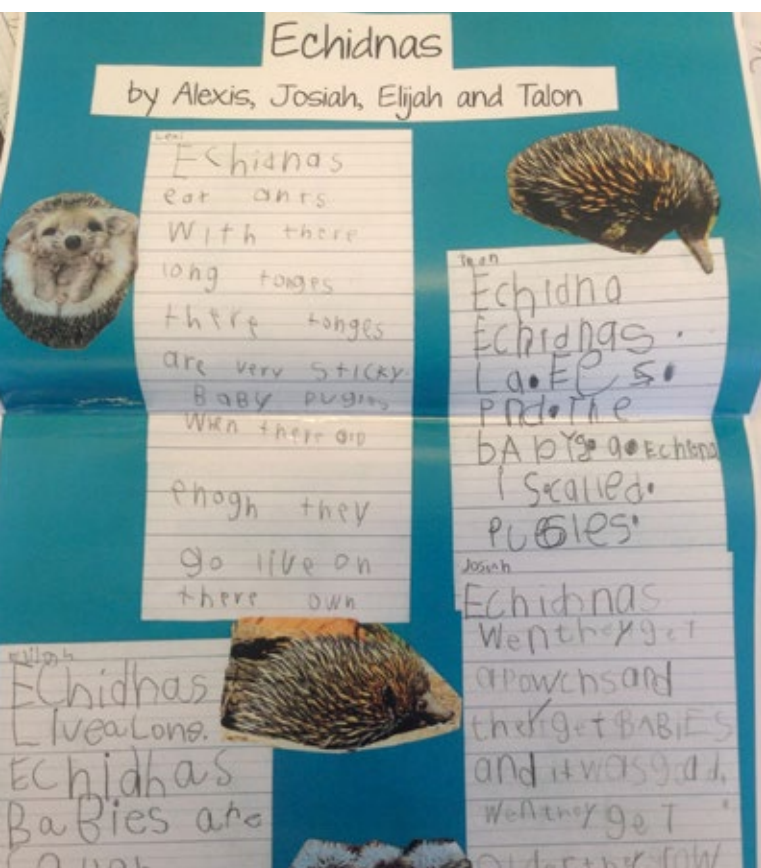 Echidnas
by Alexis, Josiah, Elijah and Talon
Echidnas
eat ants
With there
long tonges
there tonges
are very sticky.
BaBy pugles
When there old
enogh they
go live on
there own
Echidna
Echidnas.
La.EGS.
And.The
bAbY
I S.called.
PUGGles.
Josiah
Echidnas
Wen they get
a powchs and
they get BABiES
and it was
Wen they get
Echidhas
Live aLone.
Echidhas
BaBies are